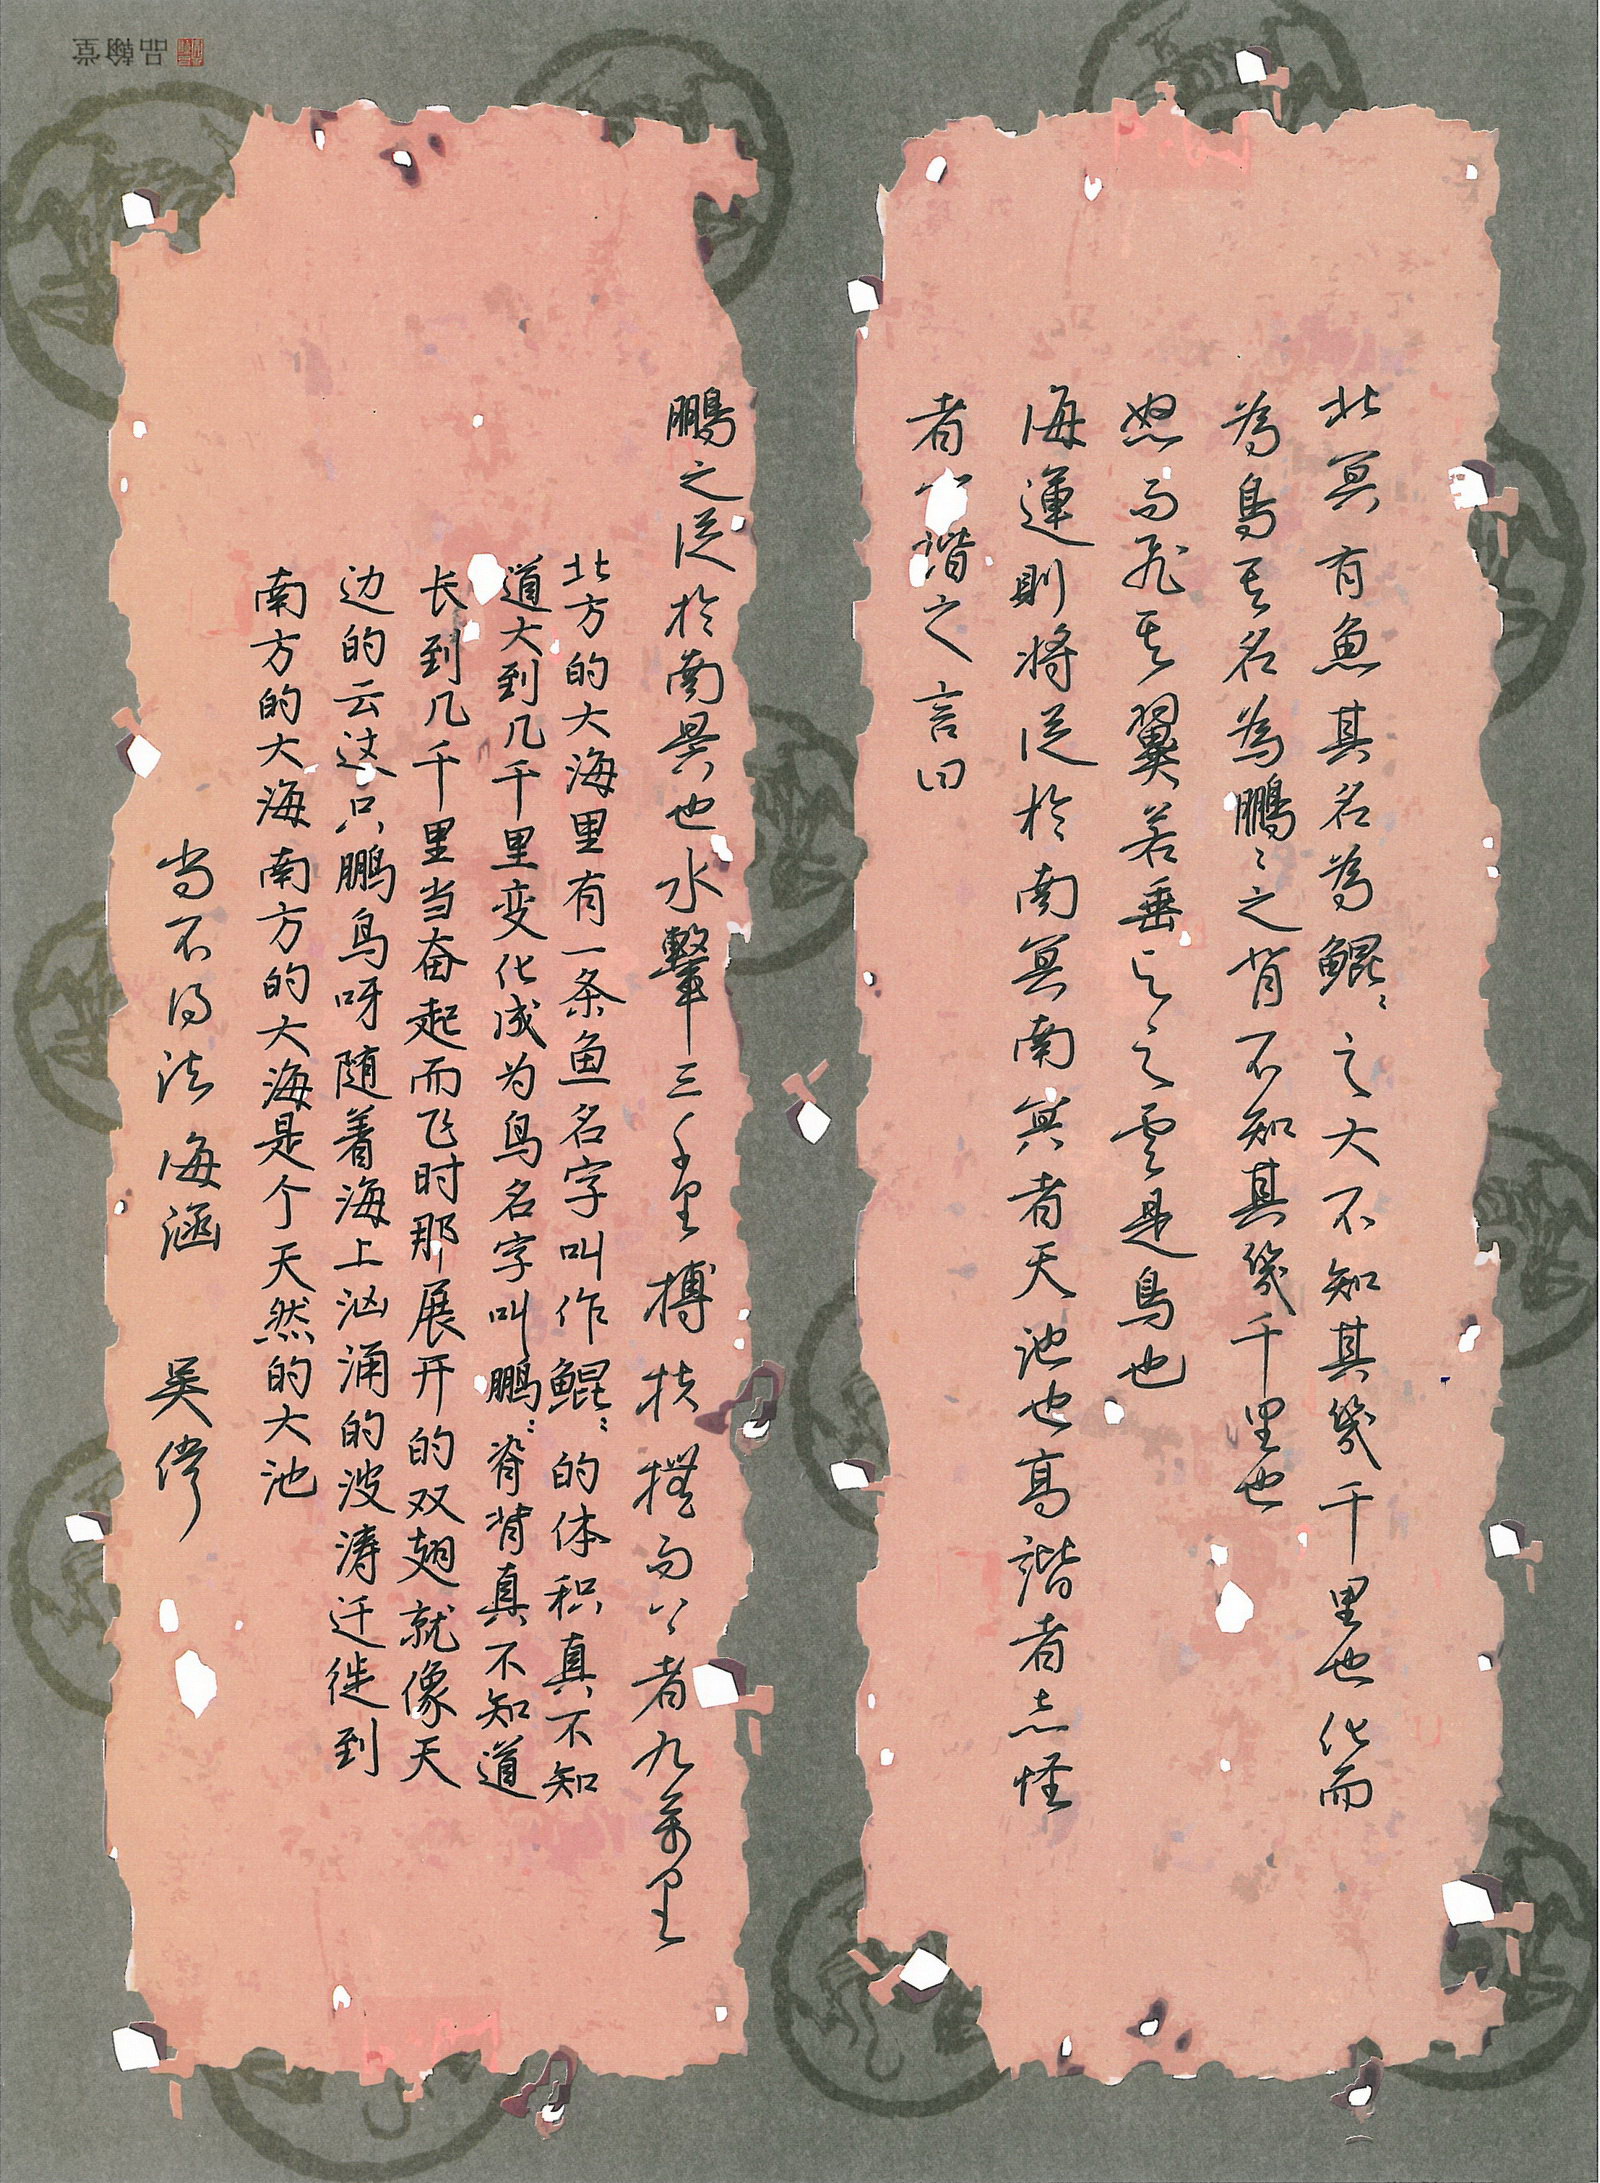 北冥有魚其名為鯤〻之大不知其幾千里也化而
為鳥其名為鵬〻之背不知其幾千里也
怒而飛其翼若垂天之雲是鳥也
海運則將徙於南冥南冥者天池也高諧者志怪
者也諧之言曰
鵬之徙於南冥也水擊三千里摶扶搖而上者九萬里
北方的大海里有一条鱼名字叫作鲲〻的体积真不知
道大到几千里变化成为鸟名字叫鹏〻脊背真不知道
长到几千里当奋起而飞时那展开的双翅就像天
边的云这只鹏鸟呀随着海上汹涌的波涛迁徙到
南方的大海南方的大海是个天然的大池
尚不得法 海涵 吴
品翰堂